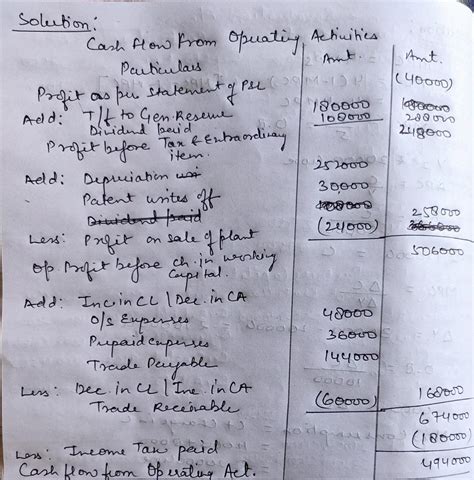 Solution:
Cash Flow From Operating Activities
Particulars Amt. Amt.
Profit as per statement of P&L (40000)
Add: T/f to Gen. Reserve 180000
Dividend paid 108000 288000
Profit before Tax & Extraordinary item. 248000
Add: Depreciation 252000
Patent writes off 30000
Dividend paid 108000
Less: Profit on sale of plant (24000) 258000
Op. Profit before ch. in working capital. 506000
Add: Inc. in CL / Dec. in CA
O/s Expenses 48000
Prepaid expenses 36000
Trade Payable 144000
Less: Dec. in CL / Inc. in CA
Trade Receivable (60000) 168000
674000
Less: Income Tax paid (180000)
Cash flow from Operating Act. 494000